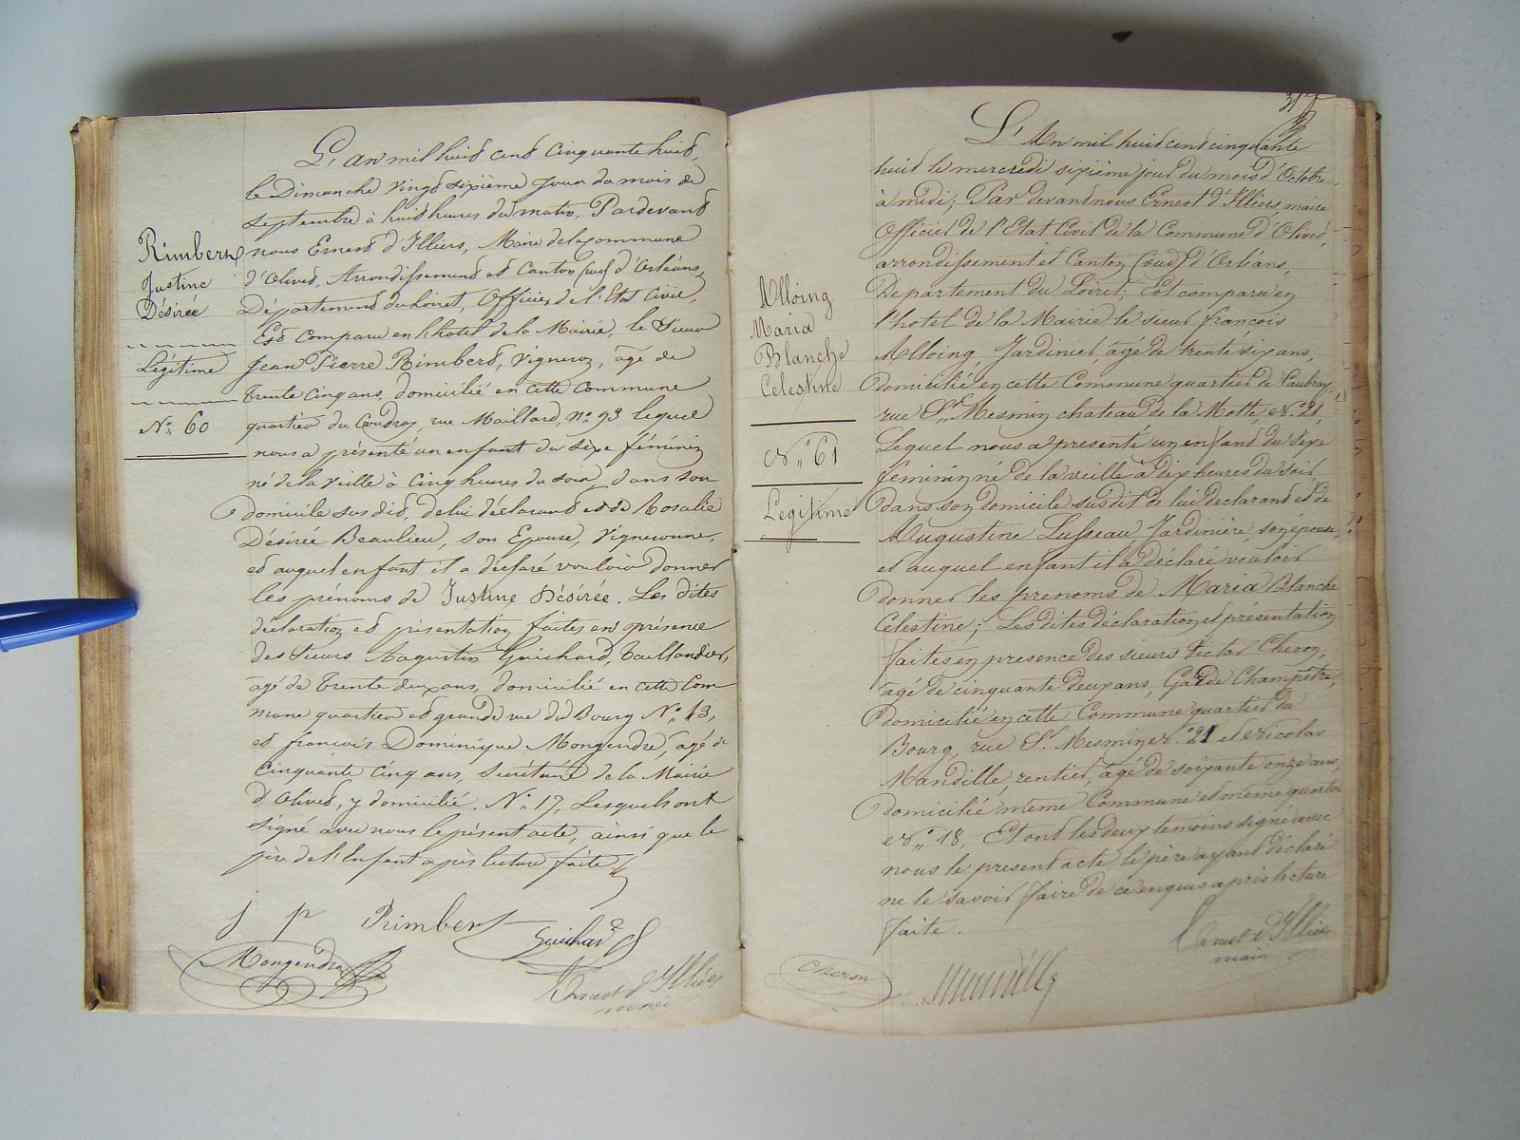 L'an mil huit cent cinquante huit,
le Dimanche vingt sixième jour du mois de
Septembre à huit heures du matin, Pardevant
nous Ernest d'Illiers, Maire de la Commune
d'Olivet, Arrondissement et Canton (sud) d'Orléans,
Département du Loiret, Officier de l'Etat Civil,
Est comparu en l'hotel de la Mairie, le Sieur
Jean Pierre Rimbert, Vigneron, âgé de
trente cinq ans, domicilié en cette Commune
quartier du Coudray, rue Maillard, n° 93 lequel
nous a présenté un enfant du sexe féminin
né de la veille à cinq heures du soir, dans son
domicile susdit, de lui déclarant et de Rosalie
Désirée Beaulieu, son Epouse, Vigneronne,
et auquel enfant il a déclaré vouloir donner
les prénoms de Justine Désirée. Les dites
déclaration et présentation faites en présence
des Sieurs Augustin Guichard, taillandier,
âgé de trente deux ans, domicilié en cette Com
mune quartier et grande rue du Bourg N° 13,
et françois Dominique Mongendre, âgé de
cinquante cinq ans, Secrétaire de la Mairie
d'Olivet, y domicilié N° 17, Lesquels ont
signé avec nous le présent acte, ainsi que le
père de l'Enfant après lecture faite
Rimbert
Justine
Désirée
Légitime
N° 60
j p Rimbert
Guichard
Mongendre
Ernest d'Illiers
maire
L'An mil huit cent cinquante
huit le mercredi sixième jour du mois d'Octobre
à midi, Par devant nous Ernest d'Illiers, maire
Officier de l'Etat Civil de la Commune d'Olivet,
arrondissement et Canton (sud) d'Orléans,
Departement du Loiret, Est comparu en
l'hotel de la Mairie le sieur françois
Alloing Jardinier, âgé de trente six ans,
domicilié en cette Commune quartier de
rue St Mesmin chateau de la Motte, N° 21,
Lequel nous a presenté un enfant du sexe
feminin, né de la veille à dix heures du soir
dans son domicile susdit de lui declarant et de
Augustine Lusseau Jardinière, son épouse,
et auquel enfant il a déclaré vouloir
donner les prenoms de Maria Blanche
Celestine; Les dites déclaration et présentation
faites en presence des sieurs Hector Cheron,
âgé de cinquante deux ans, Garde Champêtre,
domicilié en cette Commune quartier du
Bourg, rue St Mesmin N° 21 et Nicolas
Mandille, rentier, âgé de soixante onze ans,
domicilié même Commune et même quartier
N° 18, Et ont les deux temoins signé avec
nous le present acte le père ayant déclaré
ne le savoir faire de ce enquis après lecture
faite.
Alloing
Maria
Blanche
Celestine
N° 61
Legitime
Cheron
Mandille
Ernest d'Illiers
maire